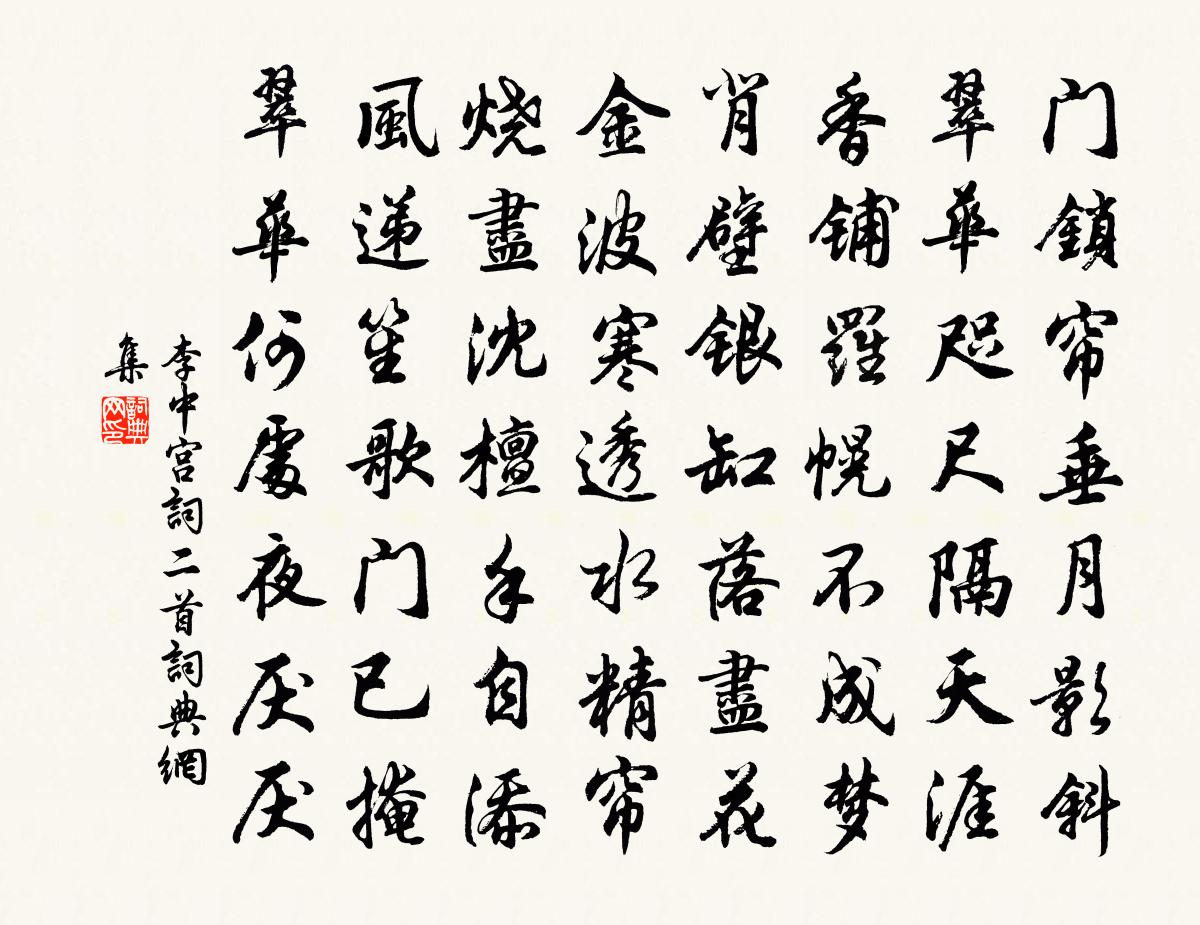 门鎖帘垂月影斜
翠華咫尺隔天涯
香铺羅幌不成梦
背壁银缸落盡花
金波寒透水精帘
烧盡沈檀手自添
風递笙歌门已掩
翠華何處夜厌厌
李中宫詞二首詞典網
集
詞典
网印